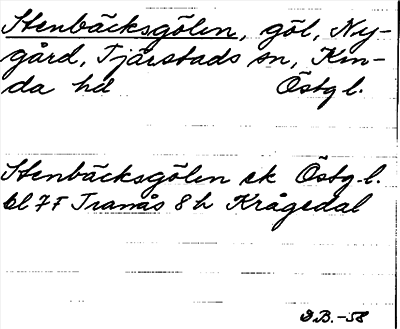 Stenbäcksgölen, göl, Ny-
gård, Tjärstads sn, Kin-
da hd Östg l.
Stenbäcksgölen ek Östg. l.
bl 7F Tranås 8h Krågedal
D.B.-58